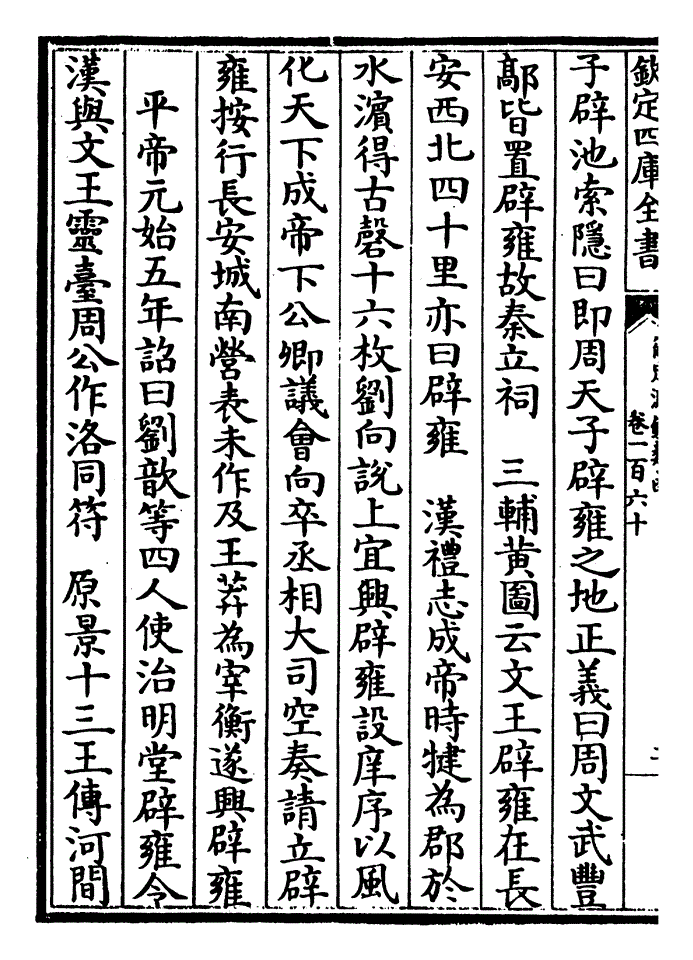 欽定四庫全書
卷一百六十
子辟池索隱曰即周天子辟雍之地正義曰周文武豐
鄗皆置辟雍故秦立祠　三輔黄圖云文王辟雍在長
安西北四十里亦曰辟雍　漢禮志成帝時犍為郡於
水濱得古磬十六枚劉向說上宜興辟雍設庠序以風
化天下成帝下公卿議會向卒丞相大司空奏請立辟
雍按行長安城南營表未作及王莽為宰衡遂興辟雍
平帝元始五年詔曰劉歆等四人使治明堂辟雍令
漢與文王靈臺周公作洛同符　原景十三王傳河間